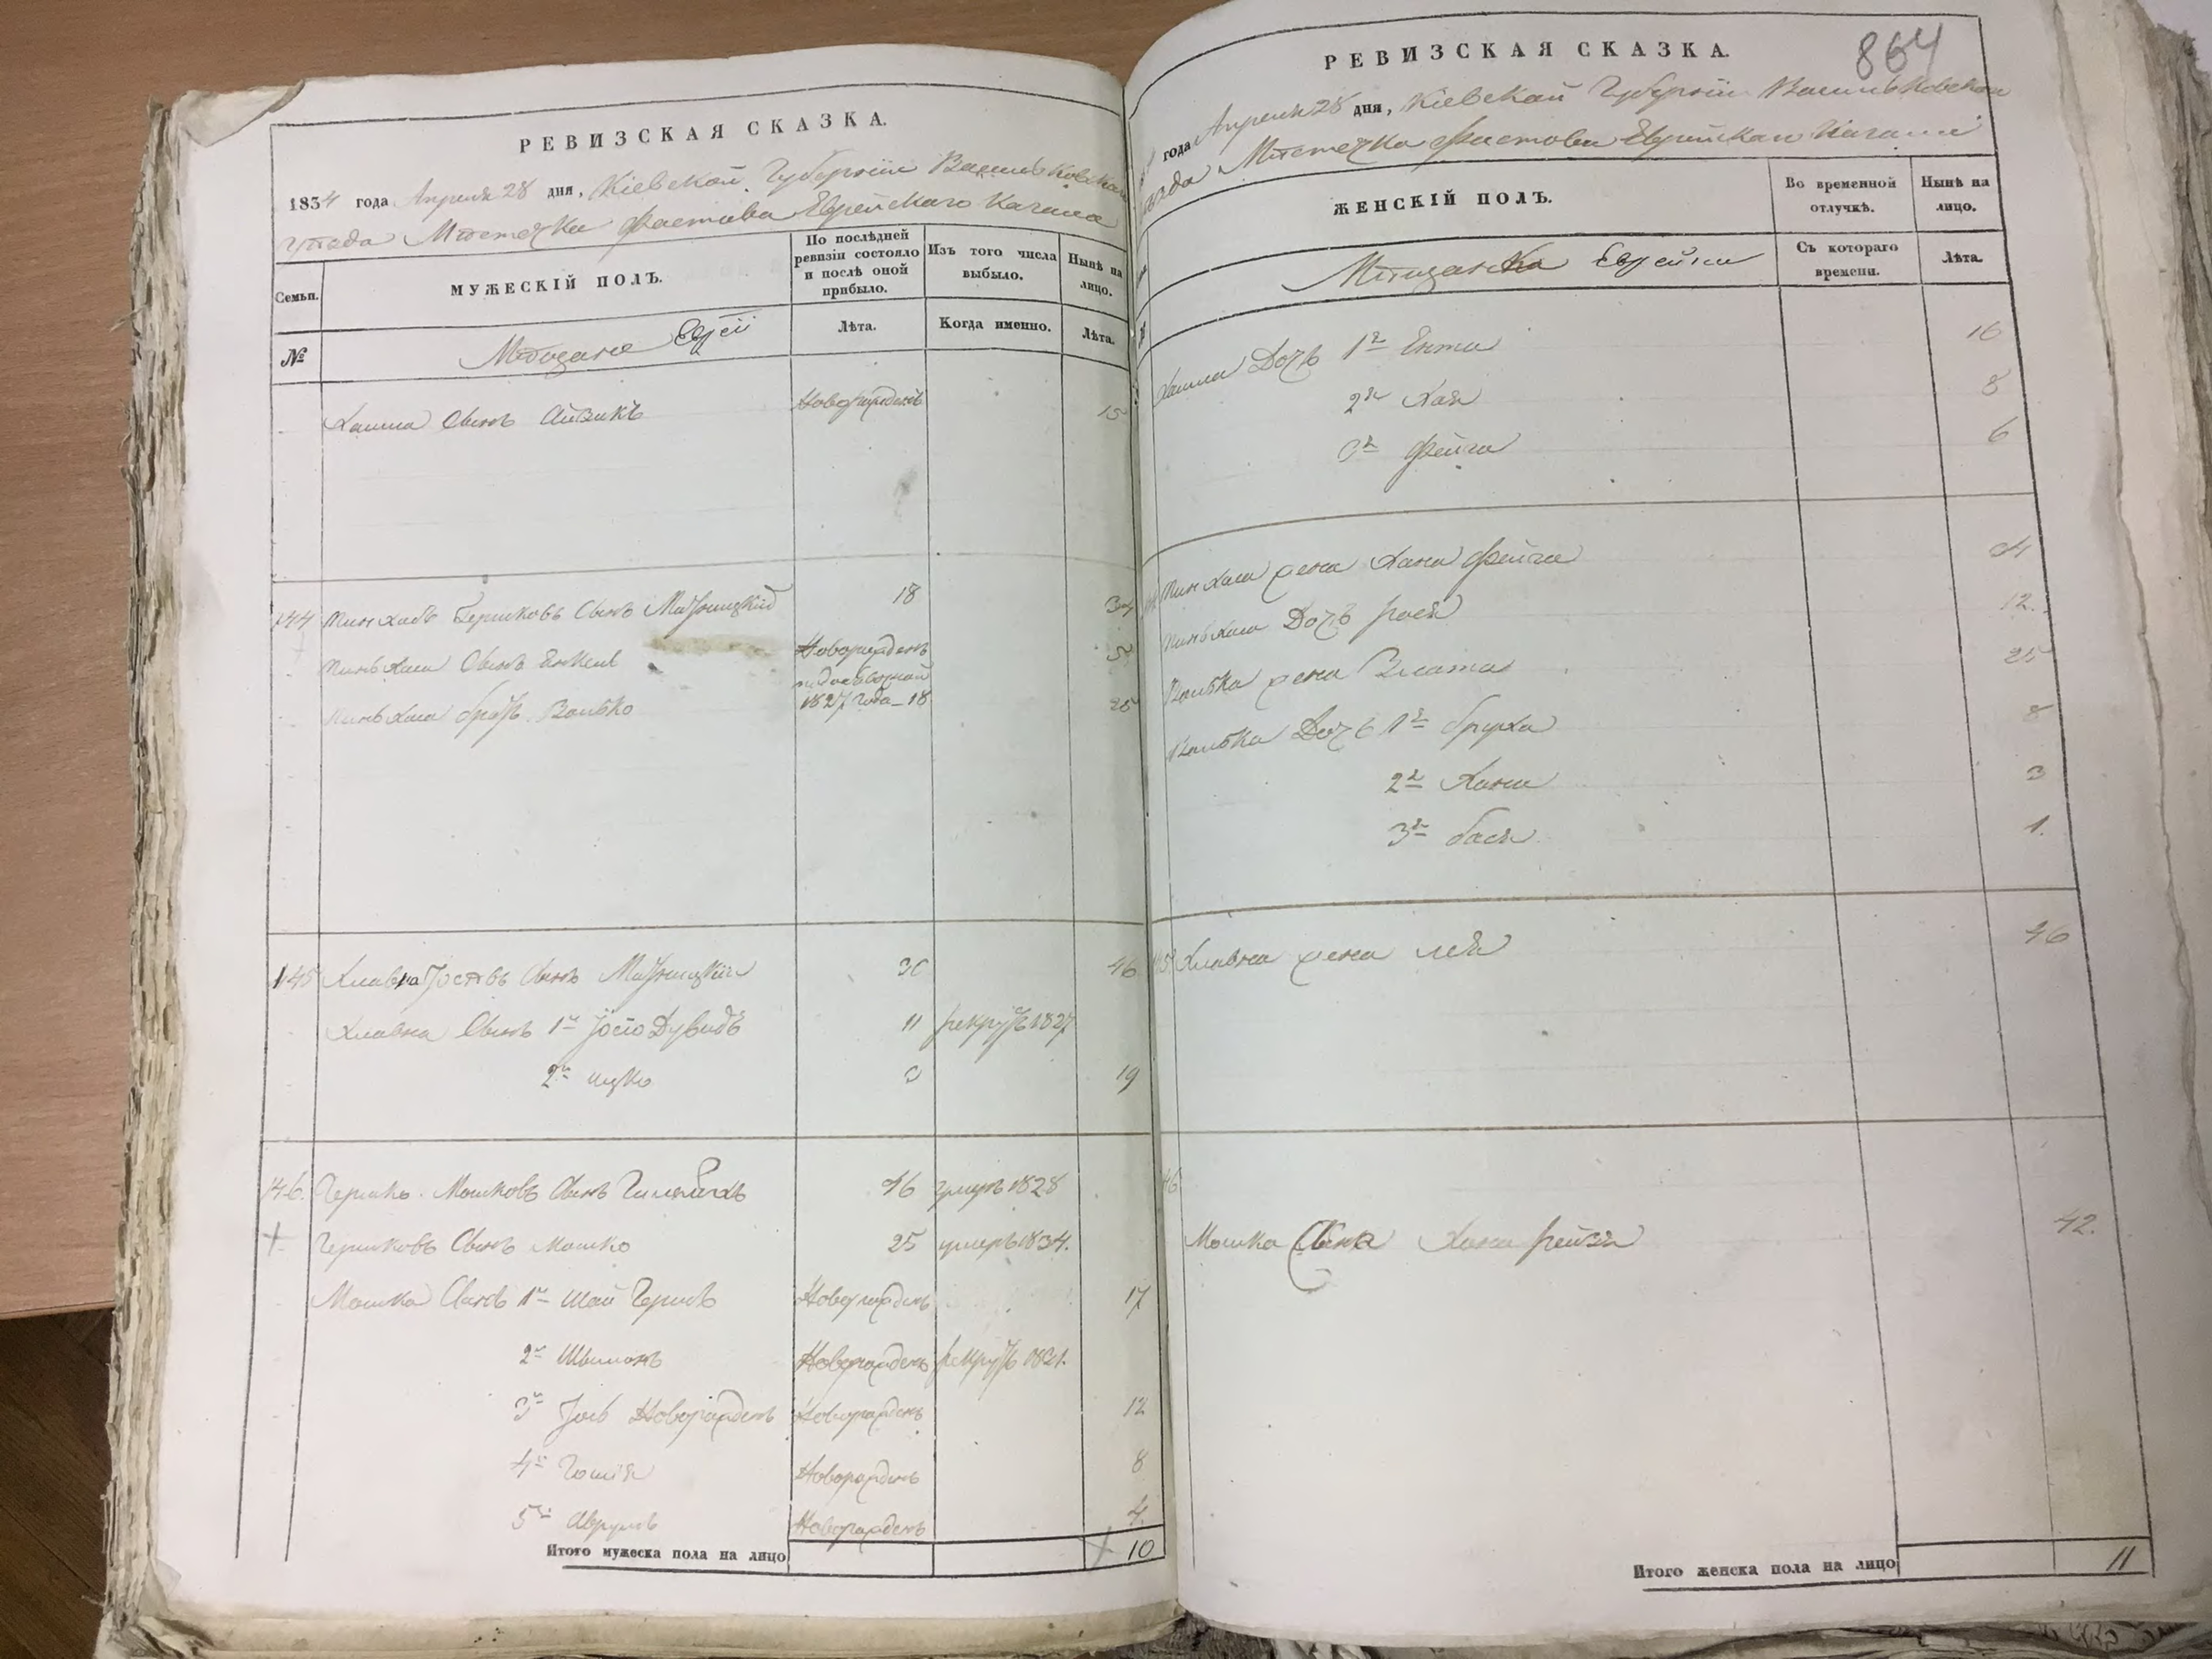 РЕВИЗСКАЯ СКАЗКА.
1834 года Апреля 28 дня, Кіевской Губерніи Васильковскаго
уѣзда Мѣстечка Фастова Еврейскаго Кагала
Семьи.
МУЖЕСКІЙ ПОЛЪ.
По послѣдней ревизіи состояло и послѣ оной прибыло.
Изъ того числа выбыло.
Нынѣ на лицо.
№
Мѣщане Евреи
Лѣта.
Когда именно.
Лѣта.
Хаима Сынъ Айзикъ Новорожденъ 15
144 Пинхасъ Берковъ Сынъ 18
Пиньхаса Сынъ Енкель Новорожденъ 5
Пиньхаса братъ Волько 1827 года 18 25
145 Хлавна Іосевъ Сынъ 30 46
Хлавна Сынъ 1й Іосіо Дувидъ 11 рекрутъ 1827
2й Ицко 3 19
146. Гершко Мошковъ Сынъ 46 умеръ 1828
Гершковъ Сынъ Мошко 25 умеръ 1834.
Мошка Сынъ 1й Шай Гершъ Новорожденъ 17
2й Шимонъ Новорожденъ рекрутъ
3й Іось Новорожденъ Новорожденъ 12
4й Новорожденъ 8
5й Аврумъ Новорожденъ 4.
Итого мужеска пола на лицо 10
РЕВИЗСКАЯ СКАЗКА.
864
года Апреля 28 дня, Кіевской Губерніи Васильковскаго
уѣзда Мѣстечка Фастова Еврейскаго Кагала
ЖЕНСКІЙ ПОЛЪ.
Во временной отлучкѣ.
Нынѣ на лицо.
Мѣщанка Еврейки
Съ котораго времени.
Лѣта.
Хаима Дочь 1я Ента 16
2я Хая 8
3я Фейга 6
Пинхаса жена Хана Фейга 34
Пиньхаса Дочь Рося 12.
Волька жена Злата 25
Волька Дочь 1я Бруха 8
2я Хана 3
3я Бася 1.
Хлавна жена Лея 46
46
Мошка жена Хана Рейзя 42.
Итого женска пола на лицо 11